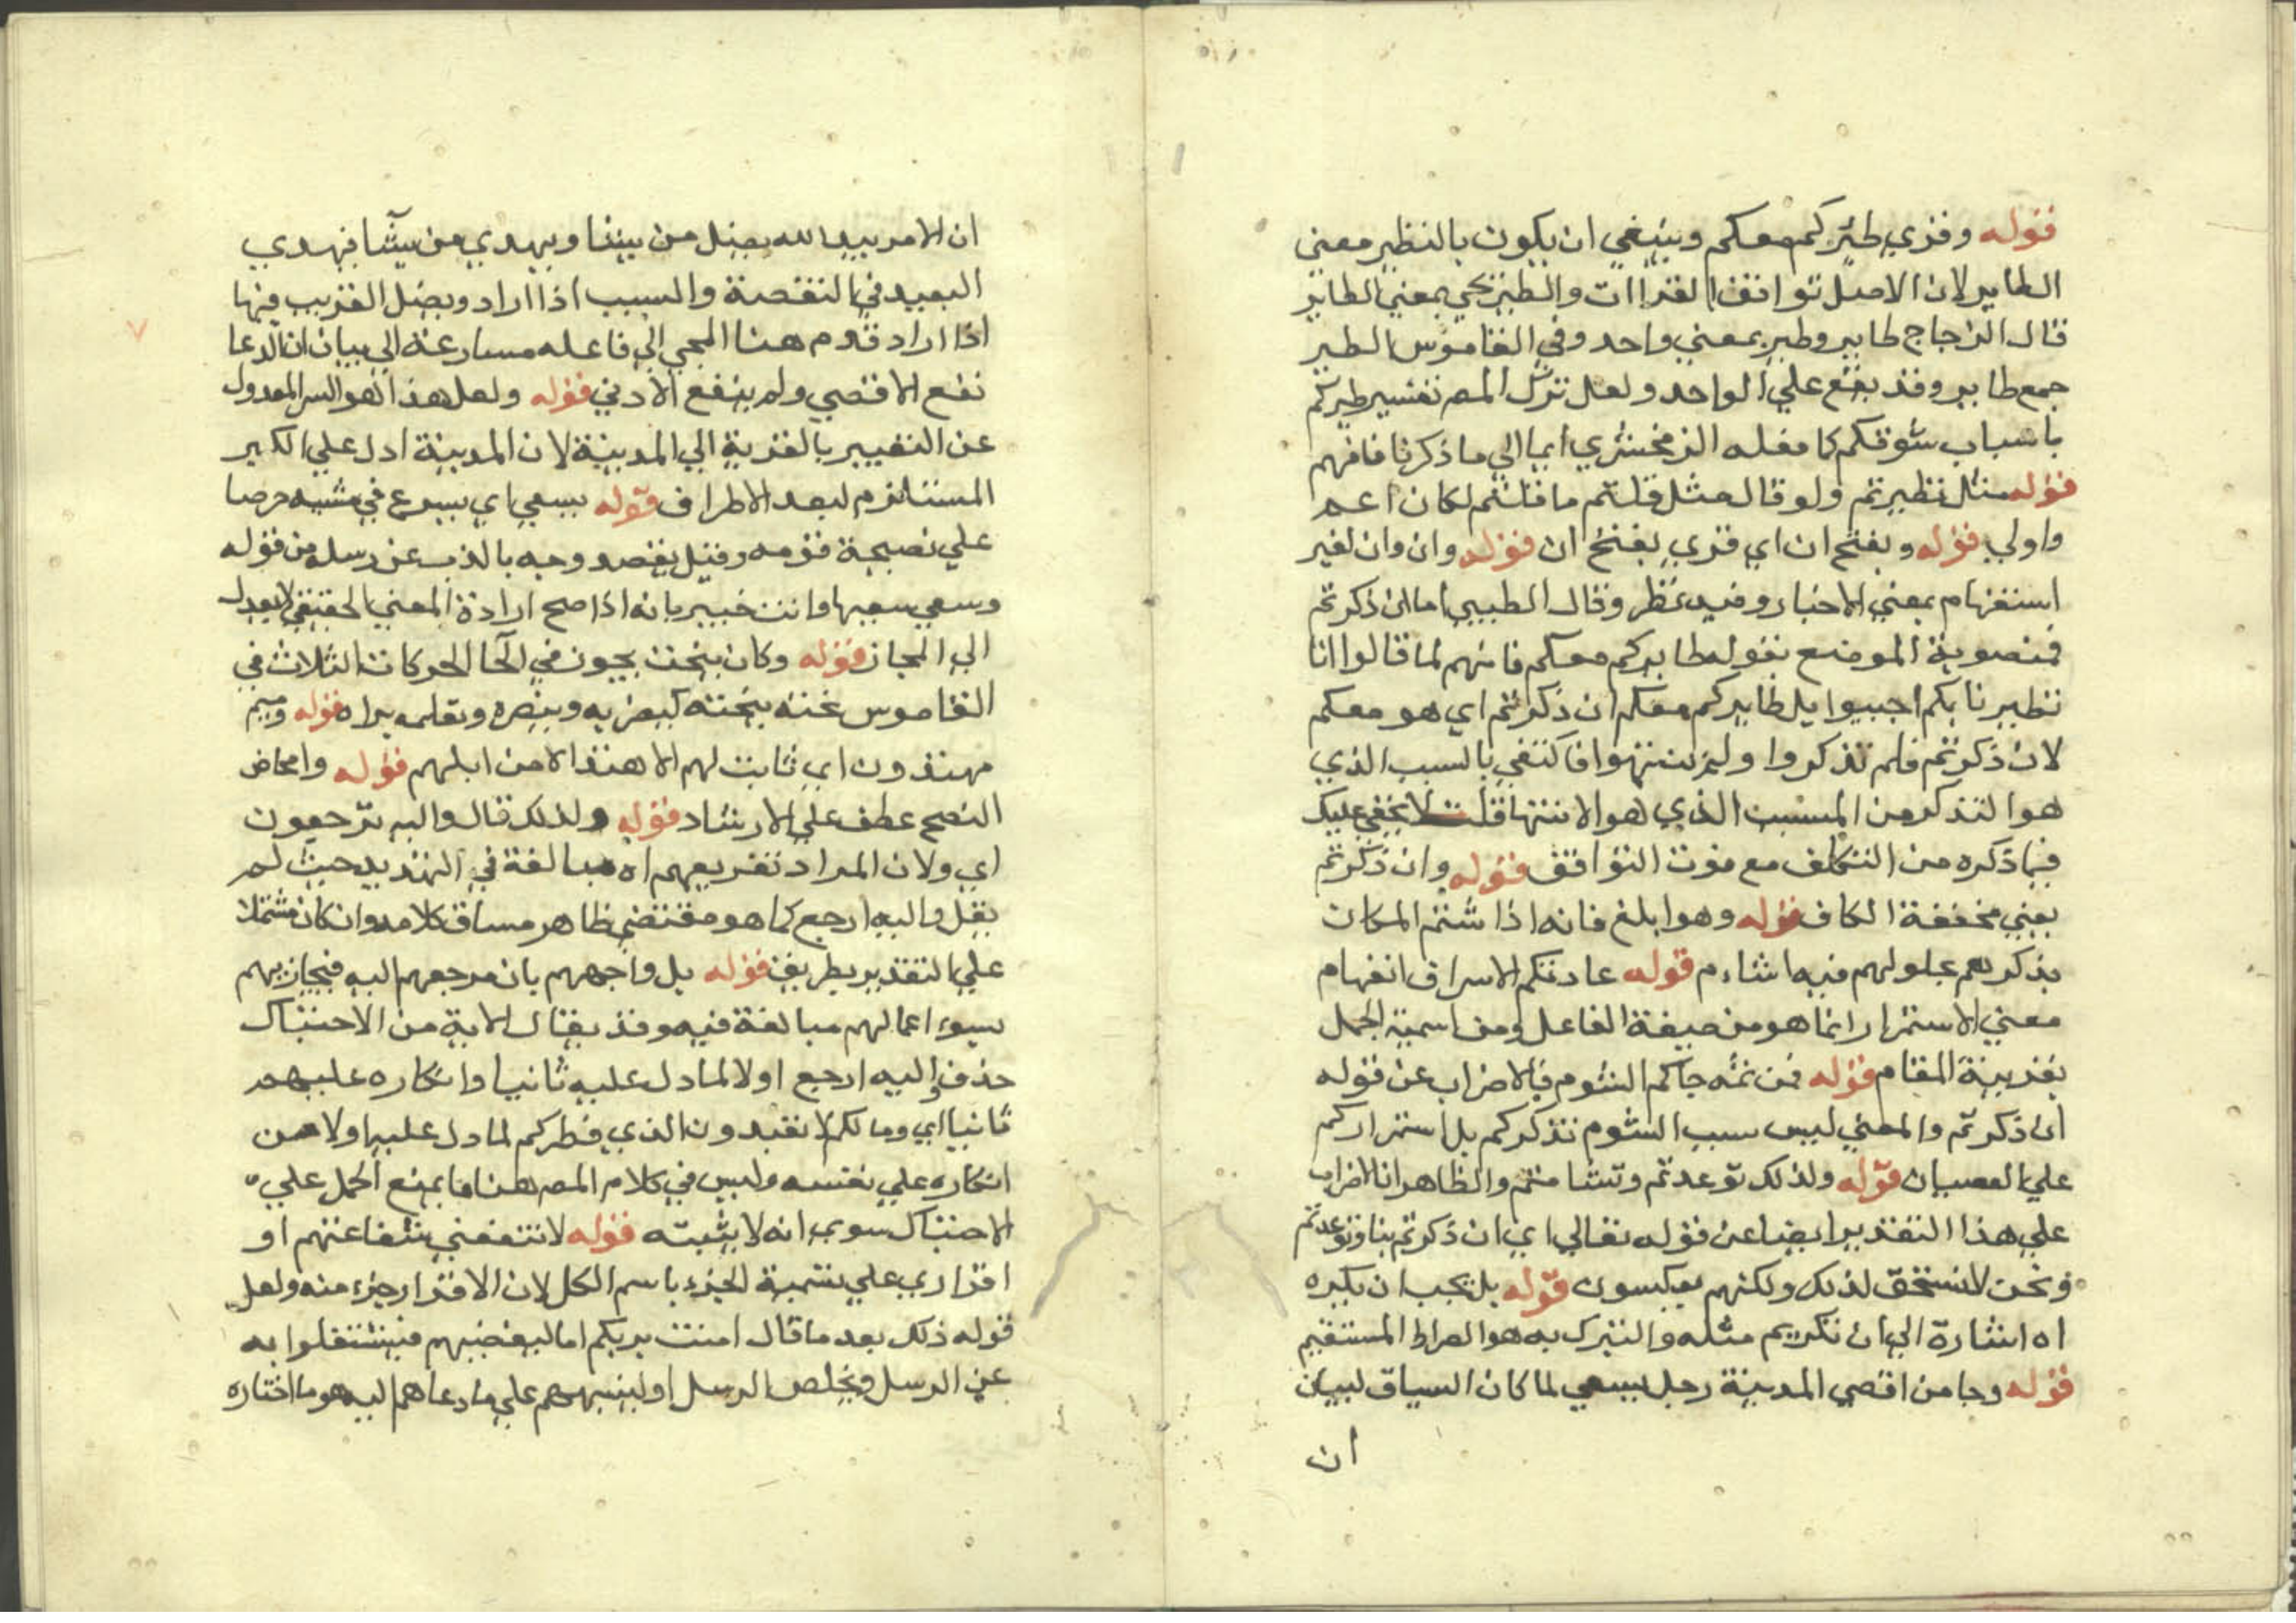 قوله وقري طيركم معكم وينبغي ان يكون بالنظير معني
الطاير لان الاصل توافق القراات والطير يجي بمعني الطاير
قال الزجاج طاير وطير بمعني واحد وفي القاموس الطير
جمع طاير وقد يقع علي الواحد ولعل ترك المص تفسير طيركم
باسباب شوقكم كما فعله الزمخشري ايما الي ما ذكرنا فافهم
قوله مثل تطيرتم ولو قال مثل قلتم ما قلتم لكان اعم
واولي قوله وبفتح ان اي قري بفتح ان قوله وان وان لغير
استفهام بمعني الاخبار وفيه نظر وقال الطيبي اما ان ذكرتم
فمنصوبة الموضع بقوله طايركم معكم فانهم لما قالوا انا
تطيرنا بكم اجيبوا بل طايركم معكم ان ذكرتم اي هو معكم
لان ذكرتم فلم تذكروا ولم تنتهوا فاكتفي بالسبب الذي
هو التذكر من المسبب الذي هو الانتها قلت لا يخفي عليك
فيما ذكره من التكلف مع فوت التوافق قوله وان ذكرتم
يعني مخففة الكاف قوله وهو ابلغ فانه اذا شتم المكان
بذكرهم بحلولهم فيه اشام قوله عادتكم الاسراف انفهام
معني الاستمرار انما هو من صيغة الفاعل ومن اسمية الجمل
بقرينة المقام قوله فمن ثمه جاكم الشوم فالاضراب عن قوله
ان ذكرتم والمعني ليس سبب الشوم تذكركم بل استمراركم
علي العصيان قوله ولذلك توعدتم وتشامتم والظاهر ان الاضراب
علي هذا التقدير ايضا عن قوله تعالي اي ان ذكرتم بنا وتوعدتم
ونحن لا نستحق لذلك ولكنهم يعكسون قوله بل يجب ان يكره
اه اشارة الي ان تكريم مثله والتبرك به هو الصراط المستقيم
قوله وجا من اقصي المدينة رجل يسعي لما كان السياق لبيان
ان
ان الامر بيد الله يضل من يشا ويهدي من يشا فيهدي
البعيد في التقصة والسبب اذا اراد ويضل القريب فيها
اذا اراد قدم هنا المجي الي فاعله مسارعة الي بيان ان الدعا
نفع الاقصي ولم ينفع الادني قوله ولعل هذا هو السر المعدول
عن التعبير بالقرية الي المدينة لان المدينة ادل علي الكبر
المستلزم لبعد الاطراف قوله يسعي اي يسرع في مشيه حرصا
علي نصيحة قومه وقيل يقصد وجه بالذب عن رسله من قوله
وسعي سعيها وانت خبير بانه اذا صح ارادة المعني الحقيقي لا يعدل
الي المجاز قوله وكان ينحت يجون في الحا الحركات الثلاث في
القاموس نحته ينحته كيضربه وينصره ويعلمه براه قوله وهم
مهتدون اي ثابت لهم الاهتدا لا من ابلهم قوله وامحاض
النصح عطف علي الارشاد قوله ولذلك قال واليه ترجعون
اي ولان المراد تقريعهم اه مبالغة في التهديد حيث لم
يقل واليه ارجع كما هو مقتضي ظاهر مساق كلامه وان كان مشتملا
علي التقدير بطريق قوله بل واجههم بان مرجعهم اليه فيجازيهم
بسوء اعمالهم مبالغة فيه وقد يقال الاية من الاحتباك
حذف واليه ارجع اولا لما دل عليه ثانيا وانكاره عليهم
ثانيا اي وما لكم لا تعبدون الذي فطركم لما دل عليه اولا من
انكاره علي نفسه وليس في كلام المص هنا ما يمنع الحمل علي
الاحتباك سوي انه لا يثبته قوله لا تنفعني شفاعتهم او
اقراري علي تسمية الجزء باسم الكل لان الاقرار جزء منه ولعل
قوله ذلك بعد ما قال امنت بربكم اما ليغضبهم فيشتغلوا به
عن الرسل ويخلص الرسل او لينبههم علي ما دعاهم اليه هو ما اختاره